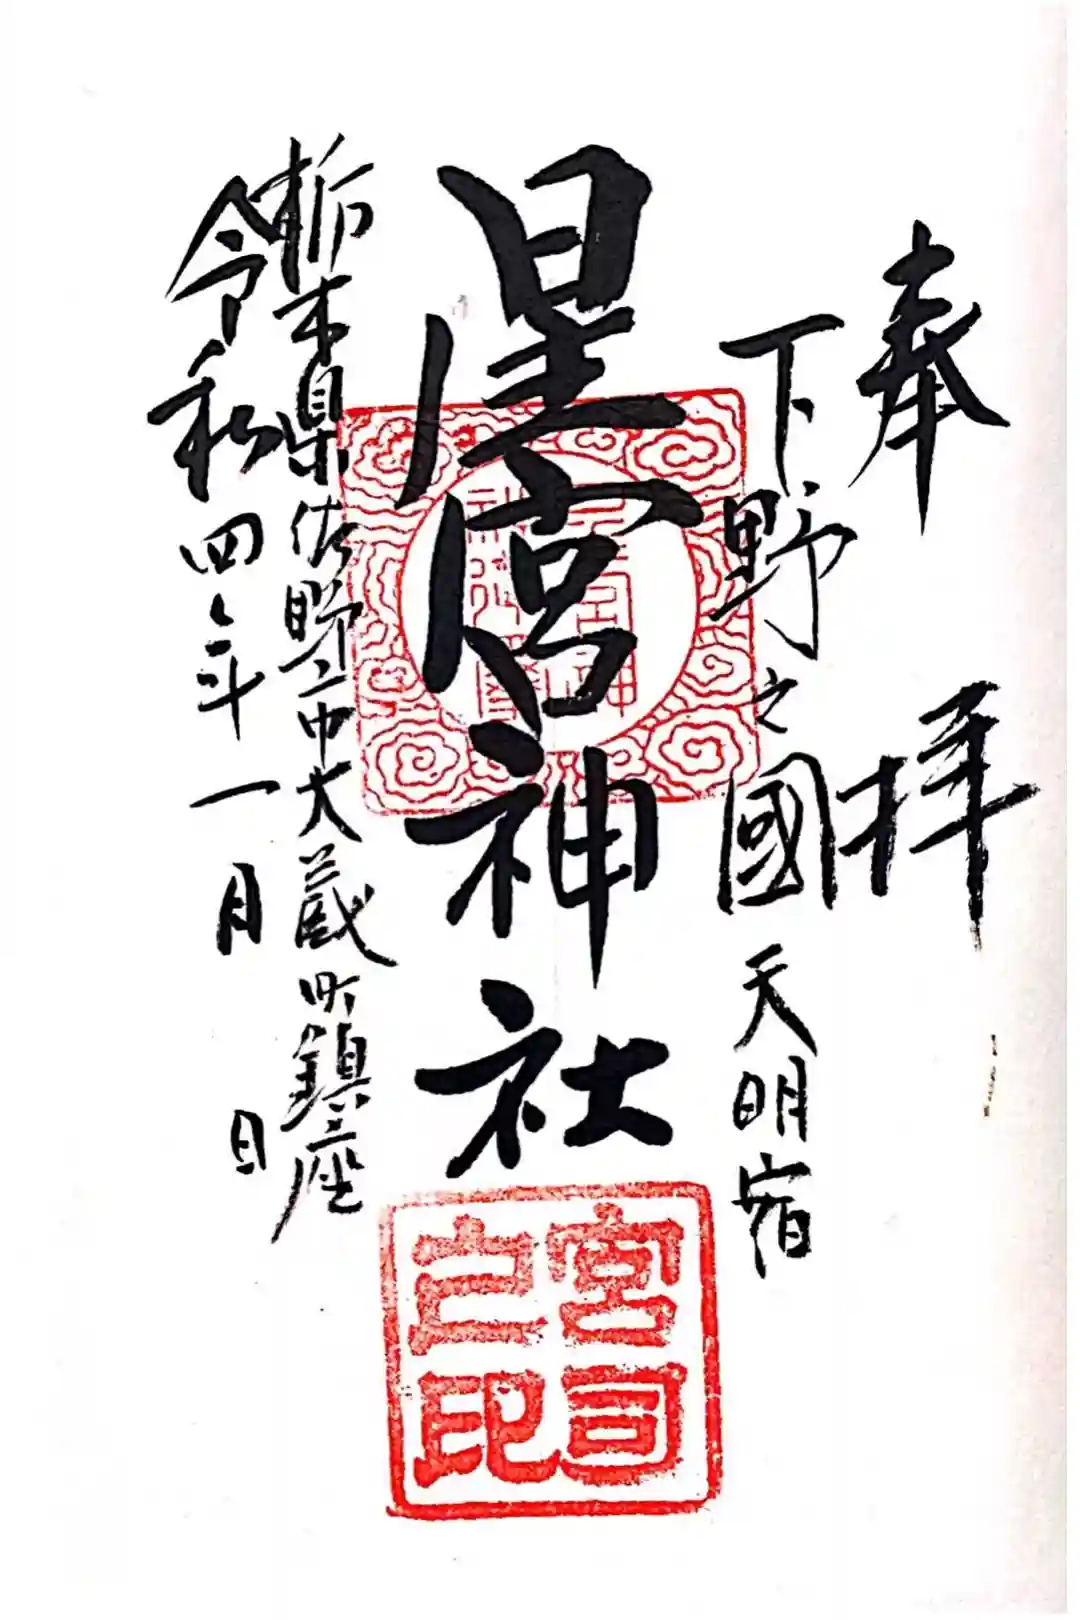 奉拝
下野之國 天明宿
星宮神社
栃木県佐野市大蔵町鎮座
令和四年一月 日
宮司之印